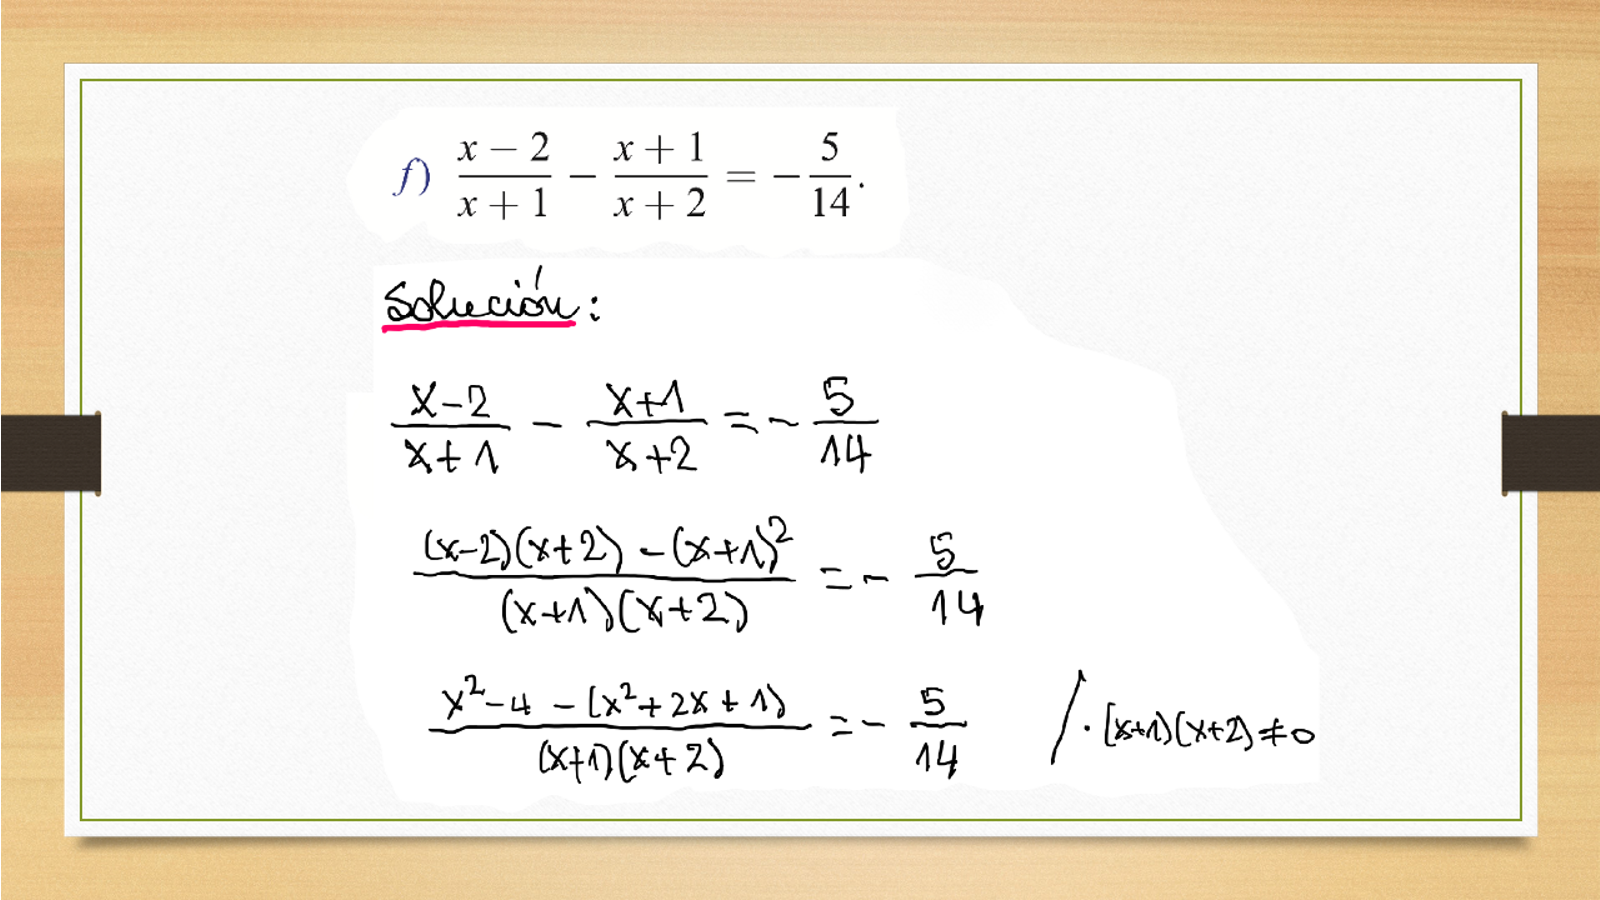 f) \frac{x-2}{x+1} - \frac{x+1}{x+2} = -\frac{5}{14}.
Solución:
\frac{x-2}{x+1} - \frac{x+1}{x+2} = -\frac{5}{14}
\frac{(x-2)(x+2)-(x+1)^2}{(x+1)(x+2)} = -\frac{5}{14}
\frac{x^2-4-(x^2+2x+1)}{(x+1)(x+2)} = -\frac{5}{14} / \cdot (x+1)(x+2) \neq 0